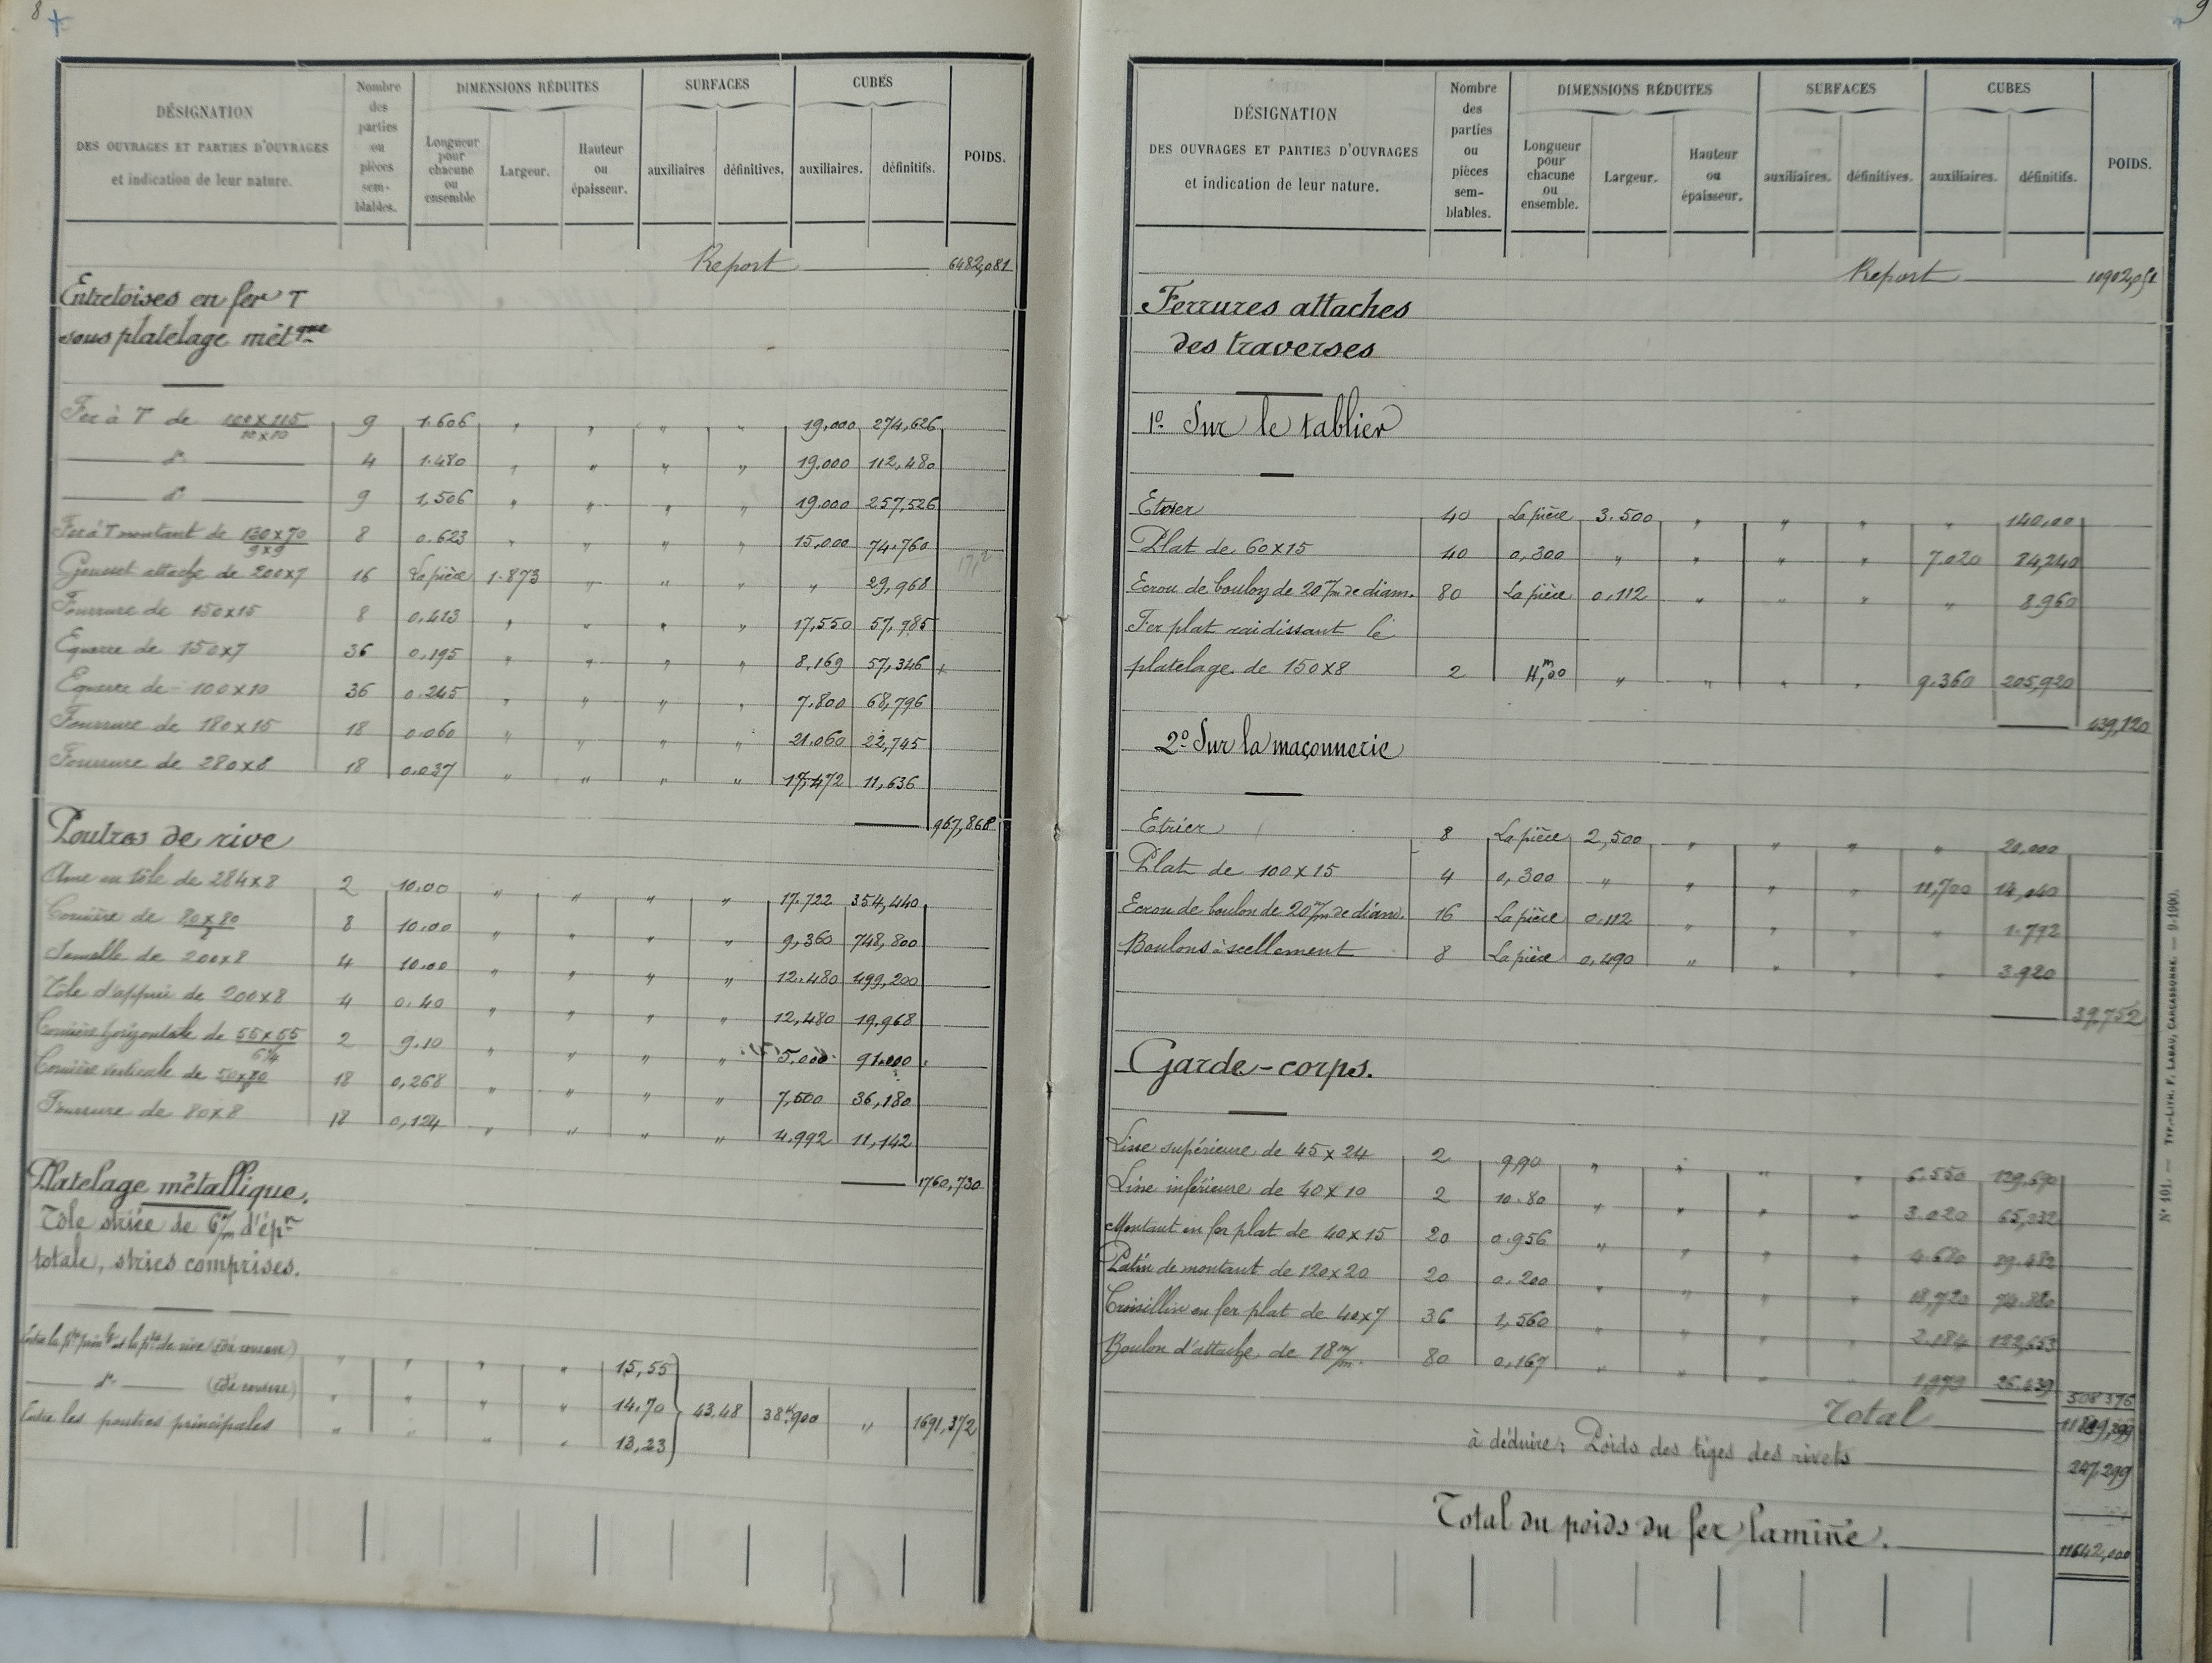 8
DÉSIGNATION
DES OUVRAGES ET PARTIES D'OUVRAGES
et indication de leur nature.
Nombre
des
parties
ou
pièces
sem-
blables.
DIMENSIONS RÉDUITES
Longueur
pour
chacune
ou
ensemble
Largeur.
Hauteur
ou
épaisseur.
SURFACES
auxiliaires
définitives.
CUBES
auxiliaires.
définitifs.
POIDS.
Report 6482,081
Entretoises en fer T
sous platelage métque
Fer à T de 100x115/10x10 9 1.606 " " " " 19.000 274,626
do 4 1.480 " " " " 19.000 112,480
do 9 1,506 " " " " 19.000 257,526
Fer à T montant de 130x70/9x9 8 0.623 " " " " 15,000 74.760
Gousset attache de 200x7 16 La pièce 1.873 " " " " 29,968
Fourrure de 150x15 8 0,413 " " " " 17,550 57,985
Equerre de 150x7 36 0.195 " " " " 8.169 57,346
Equerre de 100x10 36 0.245 " " " " 7.800 68,796
Fourrure de 180x15 18 0.060 " " " " 21.060 22,745
Fourrure de 280x8 18 0.037 " " " " 17,472 11,636
967,868
Poutres de rive
Ame en tôle de 284x8 2 10.00 " " " " 17.722 354,440
Cornière de 80x80 8 10.00 " " " " 9,360 748,800
Semelle de 200x8 4 10.00 " " " " 12.480 499,200
Tôle d'appui de 200x8 4 0.40 " " " " 12,480 19,968
Cornière horizontale de 55x55 2 9.10 " " " " 5.000 91.000
Cornière verticale de 18 0,268 " " " " 7,500 36,180
Fourrure de 80x8 18 0,124 " " " " 4.992 11,142
1760,730
Platelage métallique.
Tôle striée de 6m/m d'épr
totale, stries comprises.
Entre la et la de rive " " " " 15,55
do " " " " 14.70 43.48 38k,900 " 1691,372
Entre les poutres principales " " " " 13,23
9
DÉSIGNATION
DES OUVRAGES ET PARTIES D'OUVRAGES
et indication de leur nature.
Nombre
des
parties
ou
pièces
sem-
blables.
DIMENSIONS RÉDUITES
Longueur
pour
chacune
ou
ensemble.
Largeur.
Hauteur
ou
épaisseur.
SURFACES
auxiliaires.
définitives.
CUBES
auxiliaires.
définitifs.
POIDS.
Report 10902,051
Ferrures attaches
des traverses
1o Sur le tablier
Etrier 40 La pièce 3.500 " " " " 140,00
Plat de 60x15 40 0,300 " " " " 7.020 84,240
Ecrou de boulon de 20m/m de diam. 80 La pièce 0.112 " " " " 8.960
Fer plat raidissant le
platelage de 150x8 2 11m,00 " " " " 9.360 205,920
439,120
2o Sur la maçonnerie
Etrier 8 La pièce 2,500 " " " " 20,000
Plat de 100x15 4 0,300 " " " " 11,700 14,040
Ecrou de boulon de 20m/m de diam. 16 La pièce 0.112 " " " " 1.792
Boulons à scellement 8 La pièce 0,490 " " " " 3.920
39,752
Garde-corps.
Lisse supérieure de 45x24 2 9,90 " " " " 6.550 129,690
Lisse inférieure de 40x10 2 10.80 " " " " 3.020 65,232
Montant en fer plat de 40x15 20 0.956 " " " " 4.680 89.482
Patin de montant de 120x20 20 0.200 " " " " 18,720 74.880
Croisillon en fer plat de 40x7 36 1,560 " " " " 2.184 122,653
Boulon d'attache de 18m/m. 80 0,167 " " " " 1,979 26.439
508 376
Total
à déduire: Poids des tiges des rivets 247,299
Total du poids du fer laminé. 11642,000
No 101. — Typ.-Lith. F. Labau, Carcassonne. — 9-1900.